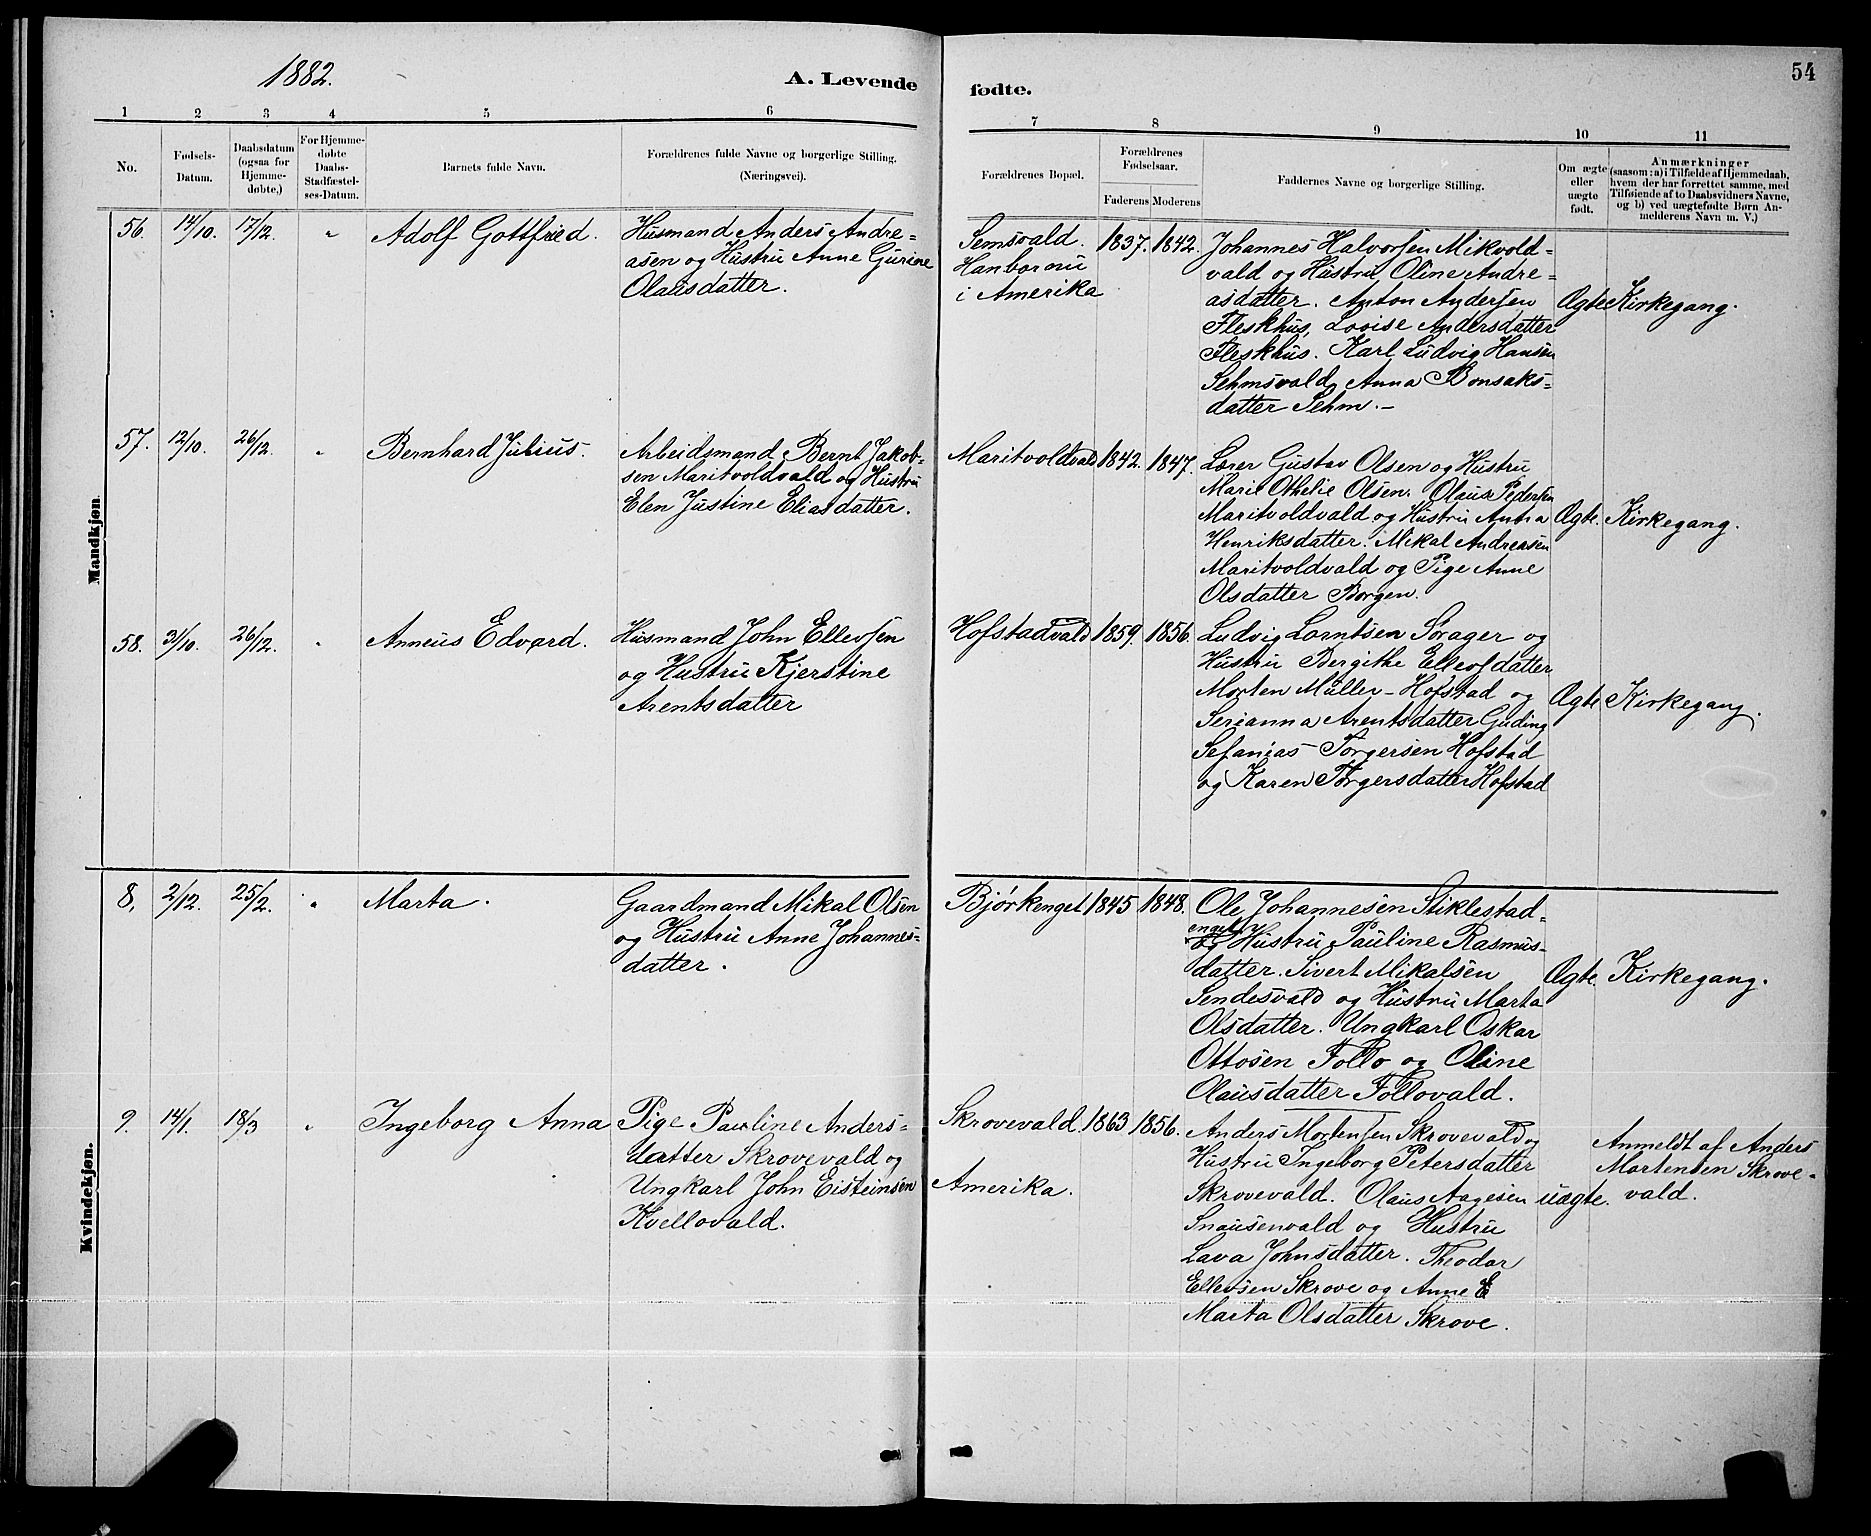 1882.
A. Levende
fødte.
54
1
2
3
4
5
6
7
8
9
10
11
No.
Fødsels-
Datum.
Daabsdatum
(ogsaa for
Hjemme-
døbte.)
For Hjemme-
døbte
Daabs-
Stadfæstel-
ses-Datum.
Barnets fulde Navn.
Forældrenes fulde Navne og borgerlige Stilling.
(Næringsvei).
Forældrenes Bopæl.
Forældrenes
Fødselsaar.
Faderens
Moderens
Faddernes Navne og borgerlige Stilling.
Om ægte
eller
uægte
født.
Anmærkninger
(saasom: a) i Tilfælde af Hjemmedaab,
hvem der har forrettet samme, med
Tilføiende af to Daabsvidners Navne,
og b) ved uægtefødte Børn An-
melderens Navn m. V.)
Mandkjøn.
56. 14/10. 17/12. " Adolf Gottfried.
Husmand Anders Andre=
asen og Hustru Anne Gurine
Olausdatter.
Semsvald.
Han bor nu
i Amerika
1837. 1842.
Johannes Halvorsen Mikvold-
vald og Hustru Oline Andre=
asdatter. Anton Andersen
Fleskhus, Lovise Andersdatter
Fleskhus. Karl Ludvig Hansen
Sehmsvald, Anna Bonsaks=
datter Sehm.-
Ægte
Kirkegang.
57. 12/10. 26/12. " Bernhard Julius.
Arbeidsmand Bernt Jakob-
sen Maritvoldvald og Hustru
Elen Justine Eliasdatter.
Maritvoldvald 1842. 1847.
Lærer Gustav Olsen og Hustru
Marie Othelie Olsen. Olaus Pedersen
Maritvoldvald og Hustru Anna
Henriksdatter. Mikal Andreasen
Maritvoldvald og Pige Anne
Olsdatter Borgen.
Ægte.
Kirkegang.
58. 31/10. 26/12. " Anneus Edvard.
Husmand John Ellevsen
og Hustru Kjerstine
Arentsdatter
Hofstadvald 1859. 1856.
Ludvig Lorntsen Sørager og
Hustru Bergithe Ellevsdatter
Morten Müller-Hofstad og
Serianna Arentsdatter Guding
Sefanias Torgersen Hofstad
og Karen Torgersdatter Hofstad
Ægte
Kirkegang.
Kvindekjøn.
8. 2/12. 25/2. " Marta.
Gaardmand Mikal Olsen
og Hustru Anne Johannes=
datter.
Bjørkenget 1845 1848.
Ole Johannesen Stiklestad=
enget
og Hustru Pauline Rasmus-
datter. Sivert Mikalsen
Sendesvald og Hustru Marta
Olsdatter. Ungkarl Oskar
Ottosen Follo og Oline
Olausdatter Follovald.
Ægte.
Kirkegang.
9. 14/1. 18/3 " Ingeborg Anna
Pige Pauline Anders=
datter Skrovevald og
Ungkarl John Eisteinsen
Kvellovald.
Skrovevald.
Amerika.
1863 1856.
Anders Mortensen Skrovevald og
Hustru Ingeborg Petersdatter
Skrovevald. Olaus Aagesen
Snausenvald og Hustru
Lava Johnsdatter. Theodor
Ellevsen Skrove og Anne E
Marta Olsdatter Skrove.
uægte.
Anmeldt af Anders
Martensen Skrove-
vald.